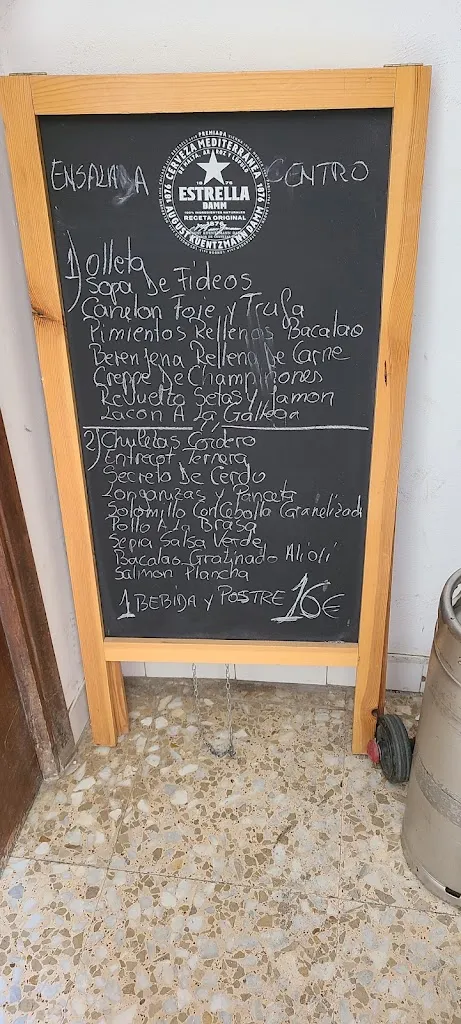 PREMIADA
CERVEZA MEDITERRÁNEA
MALTA, ARROZ Y LÚPULO
1876 1876
ESTRELLA
DAMM
100% INGREDIENTES NATURALES
RECETA ORIGINAL
1876
AUGUST KUENTZMANN DAMM
ENSALADA CENTRO
1) Olleta
Sopa De Fideos
Canelon Foie y Trufa
Pimientos Rellenos Bacalao
Berenjena Rellena De Carne
Creppe De Champiñones
Revuelto Setas y Jamon
Lacon A La Gallega
2) Chuletas Cordero
Entrecot Ternera
Secreto De Cerdo
Longanizas y Panceta
Solomillo Con Cebolla Caramelizada
Pollo A La Brasa
Sepia Salsa Verde
Bacalao Gratinado Alioli
Salmon Plancha
1 BEBIDA y POSTRE 16€